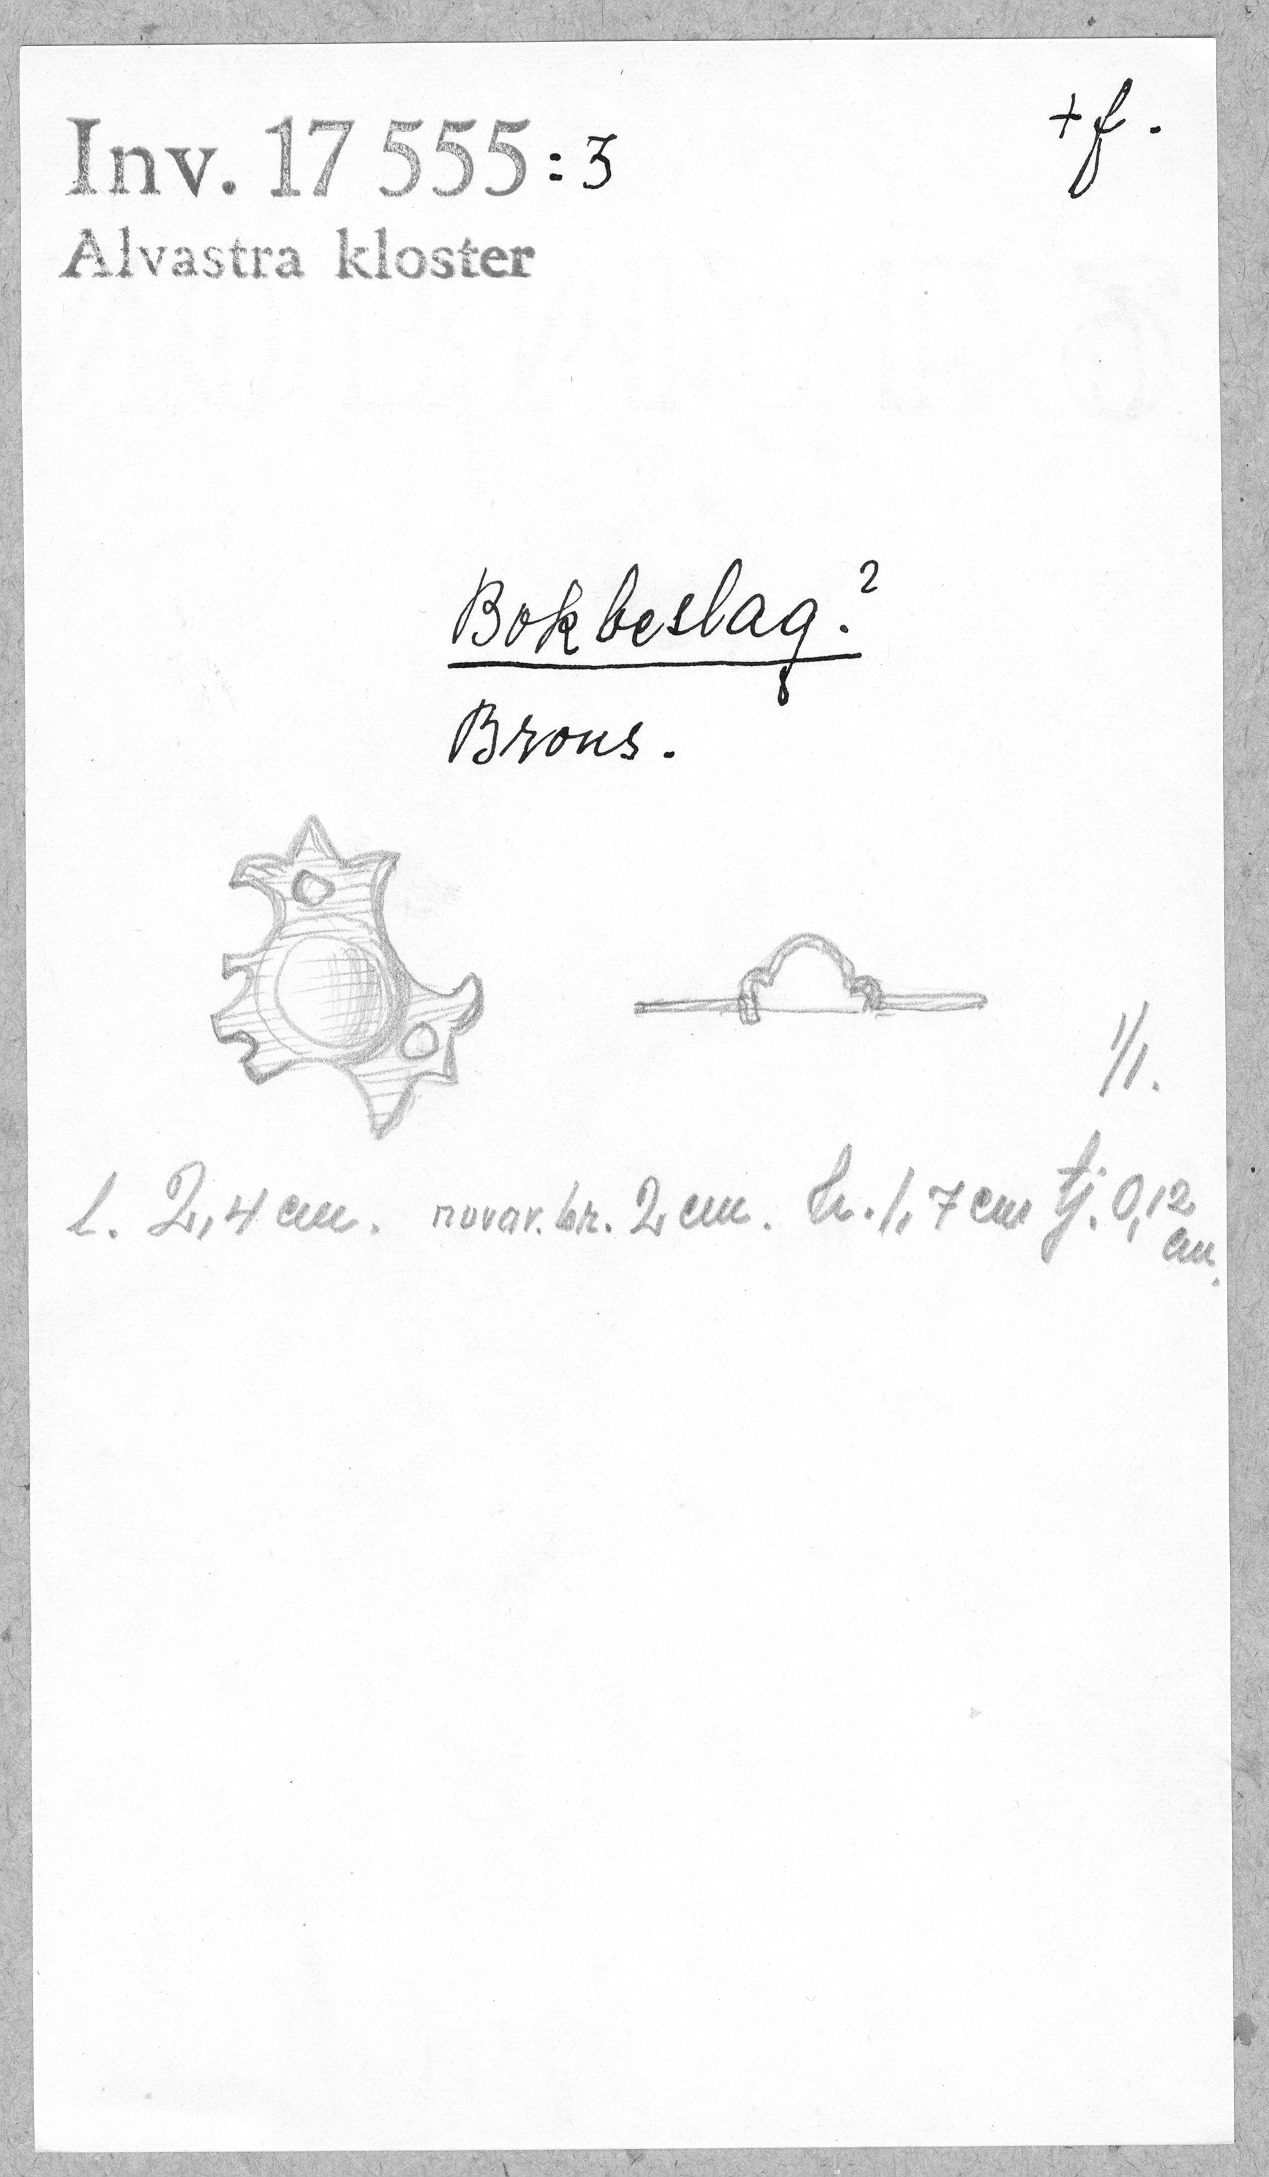 Inv. 17 555:3
+f.
Alvastra kloster
Bokbeslag.?
Brons.
1/1.
l. 2,4 cm. nuvar. br. 2 cm. h. 1,7 cm tj. 0,12 cm.